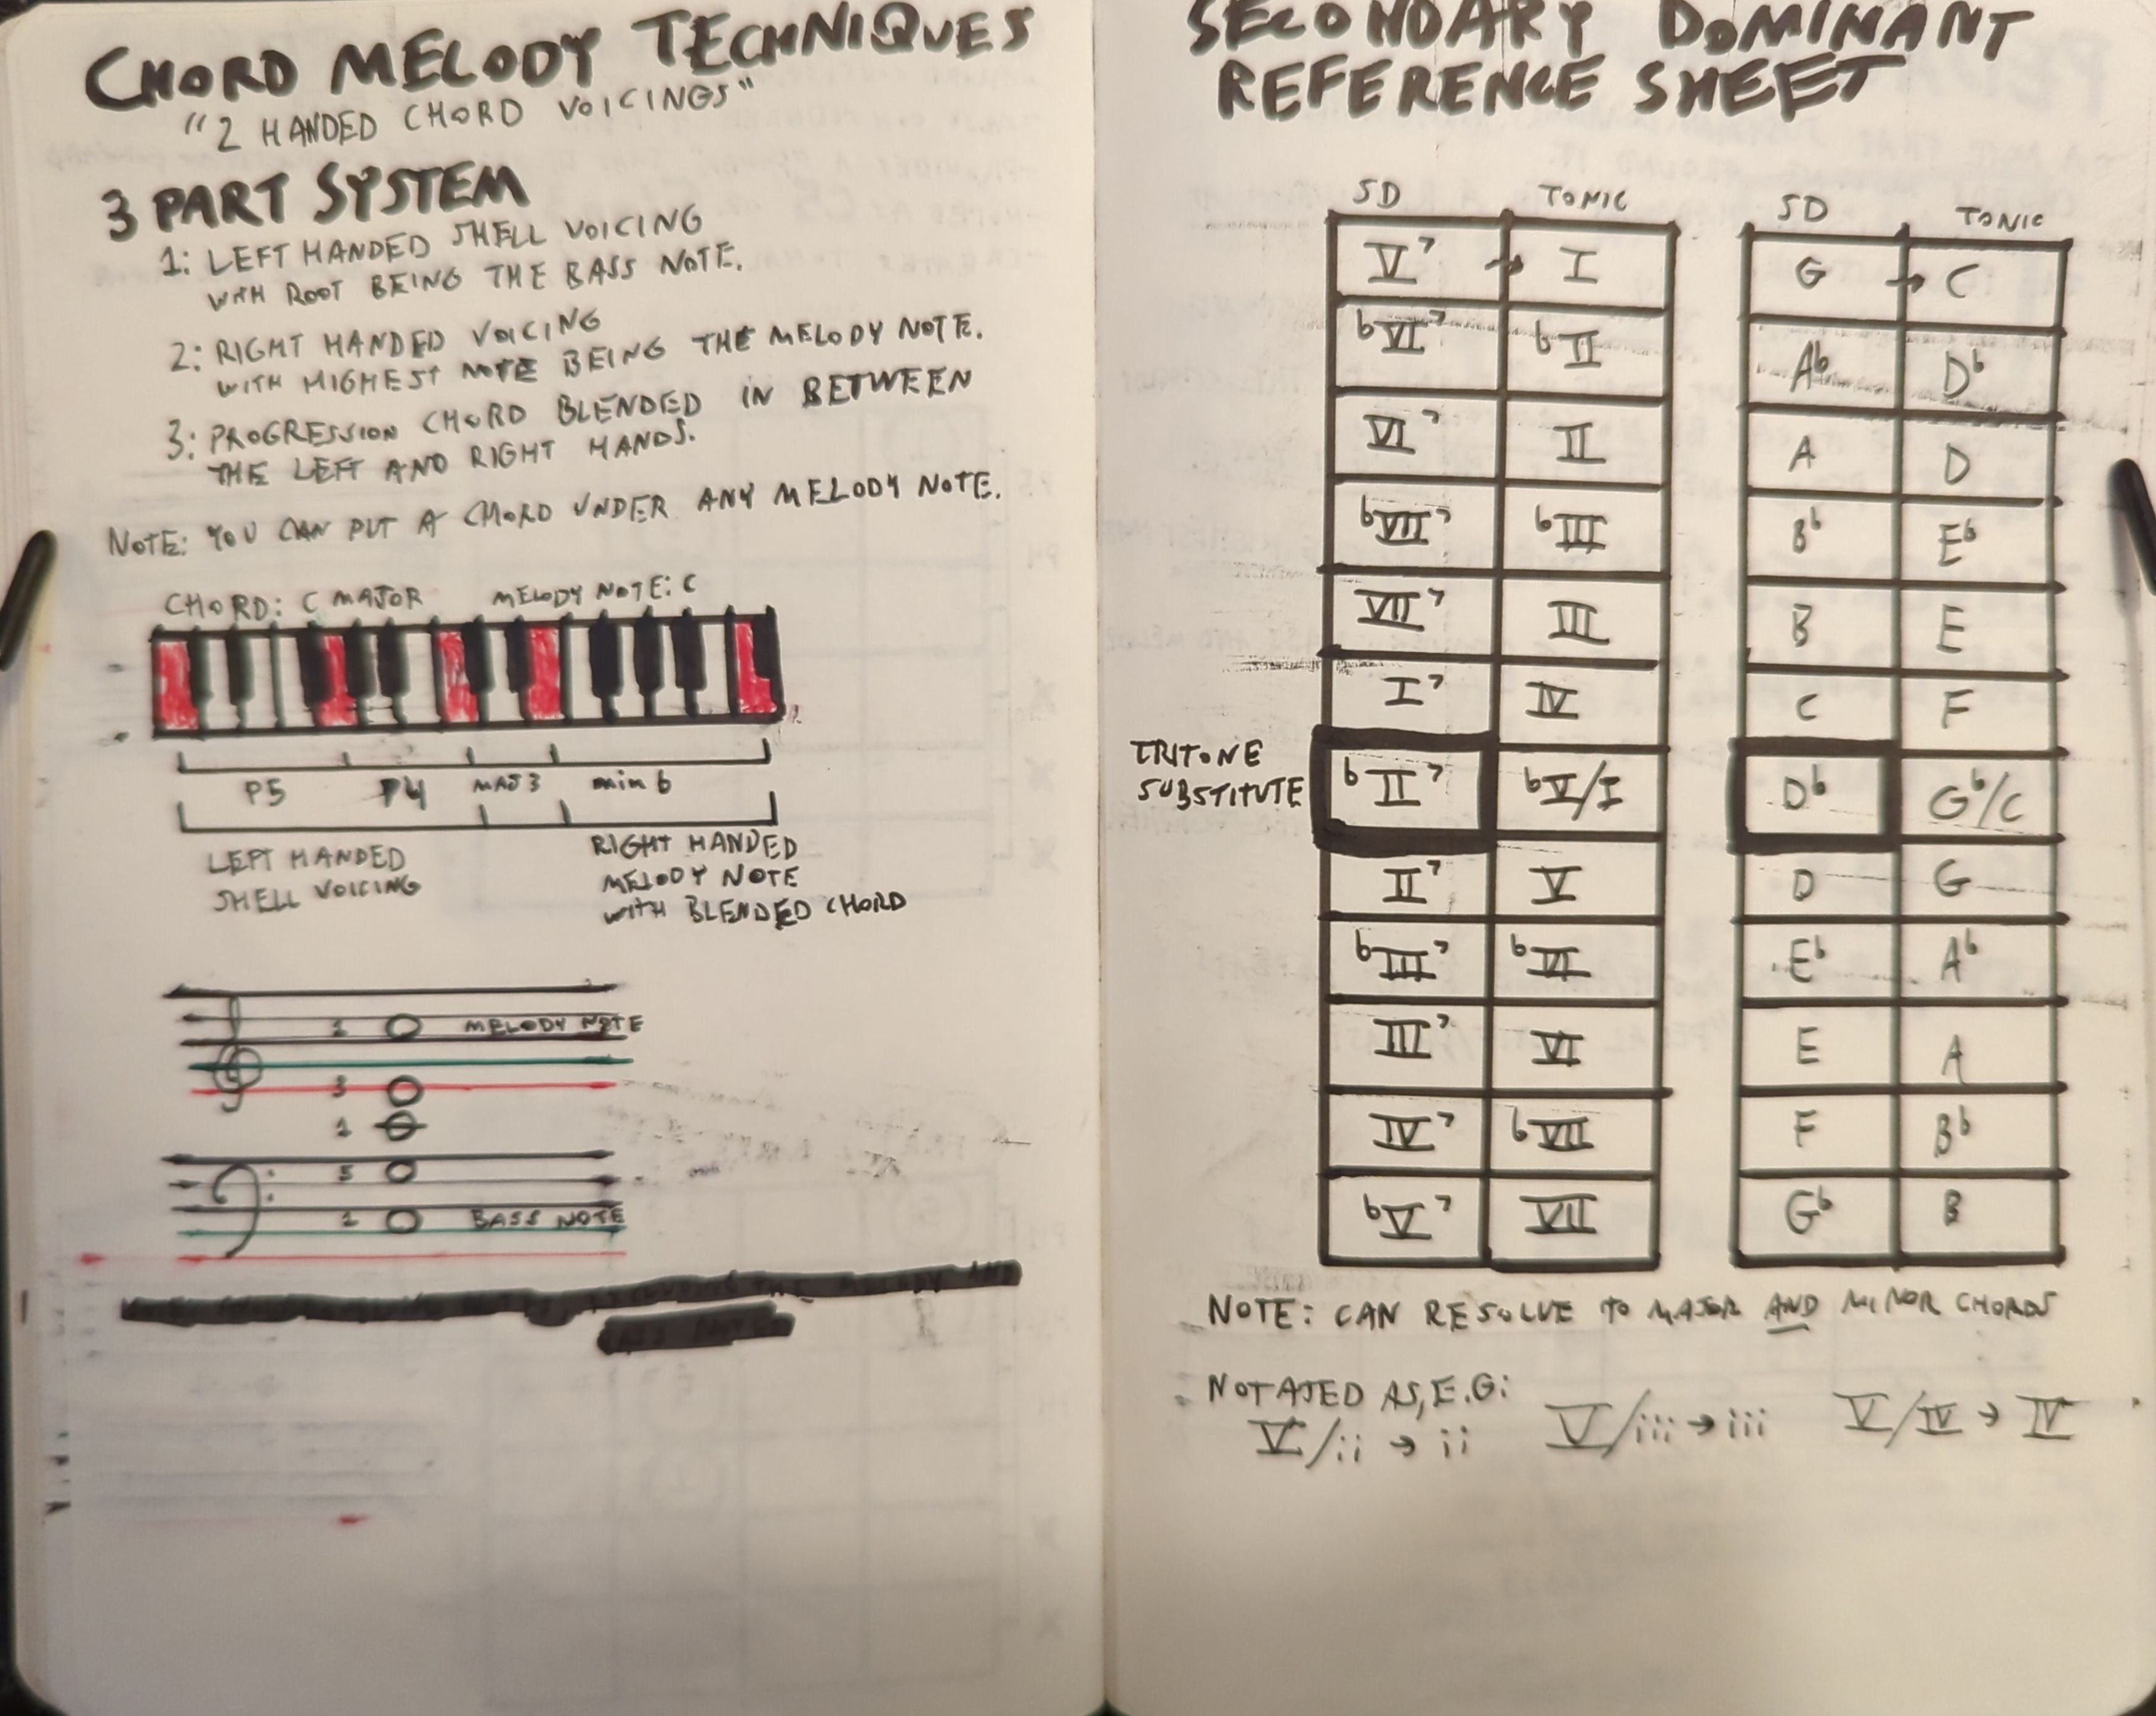 CHORD MELODY TECHNIQUES
"2 HANDED CHORD VOICINGS"
3 PART SYSTEM
1: LEFT HANDED SHELL VOICING
WITH ROOT BEING THE BASS NOTE.
2: RIGHT HANDED VOICING
WITH HIGHEST NOTE BEING THE MELODY NOTE.
3: PROGRESSION CHORD BLENDED IN BETWEEN
THE LEFT AND RIGHT HANDS.
NOTE: YOU CAN PUT A CHORD UNDER ANY MELODY NOTE.
CHORD: C MAJOR MELODY NOTE: C
P5 P4 MAJ 3 min 6
LEFT HANDED
SHELL VOICING
RIGHT HANDED
MELODY NOTE
WITH BLENDED CHORD
1 MELODY NOTE
3
1
5
1 BASS NOTE
SECONDARY DOMINANT
REFERENCE SHEET
SD TONIC SD TONIC
V7 → I G → C
bVI7 bII Ab Db
VI7 II A D
bVII7 bIII Bb Eb
VII7 III B E
I7 IV C F
TRITONE
SUBSTITUTE
bII7 bV/I Db Gb/C
II7 V D G
bIII7 bVI Eb Ab
III7 VI E A
IV7 bVII F Bb
bV7 VII Gb B
NOTE: CAN RESOLVE TO MAJOR AND MINOR CHORDS
NOTATED AS, E.G:
V/ii → ii V/iii → iii V/IV → IV